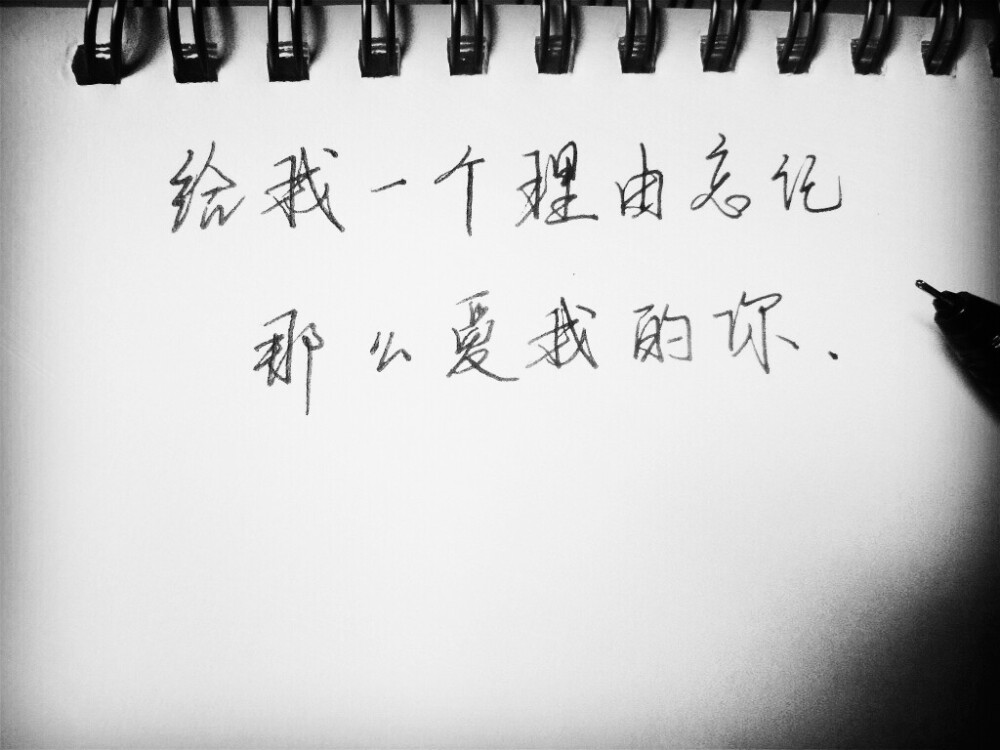 给我一个理由忘记
那么爱我的你.